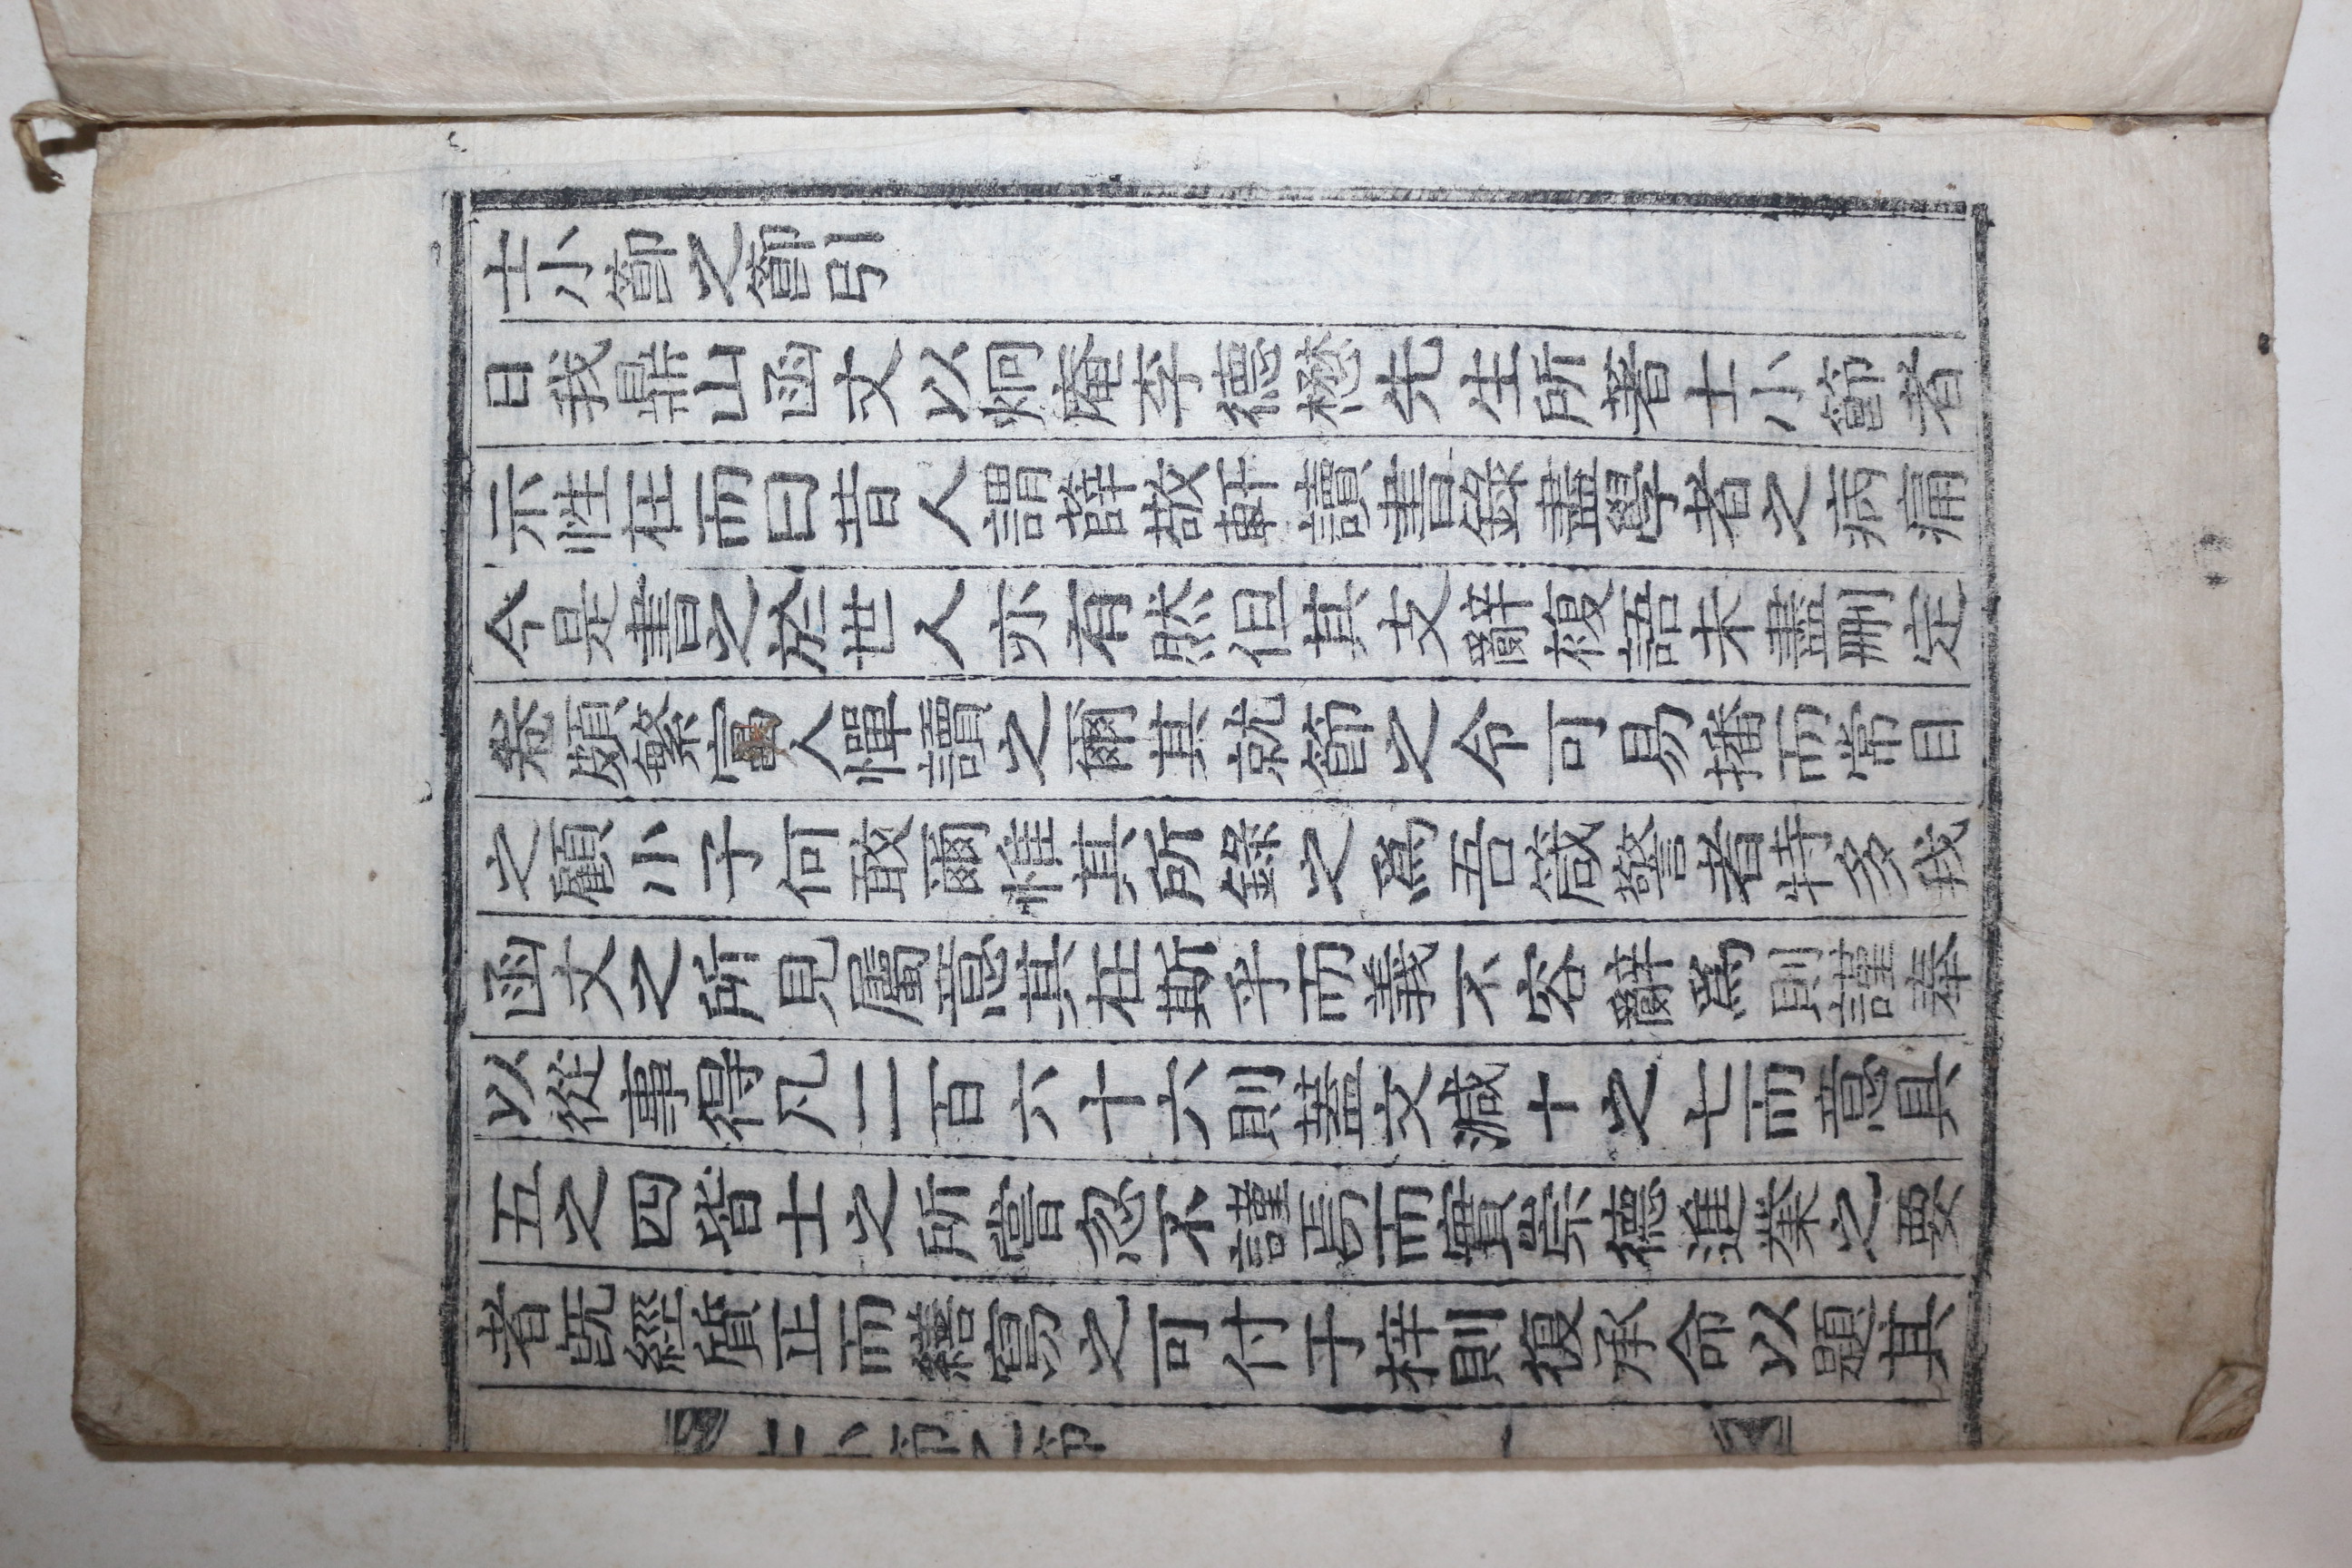 士小節之節引
日我鼎山函丈以炯庵李德懋先生所著士小節者
示性在而曰昔人謂薛敬軒讀書錄盡學者之病痛
今是書之於世人亦有然但其文辭複語未盡刪定
卷頗繁富人憚讀之爾其就節之令可易播而常目
之顧小子何敢爾惟其所錄之爲吾箴警者特多我
函丈之所見屬意其在斯乎而義不容辭焉則謹奉
以從事得凡二百六十六則蓋文減十之七而意具
五之四皆士之所嘗忽不謹焉而實崇德進業之要
者旣經質正而繕寫之可付于梓則復承命以題其
士小節之節